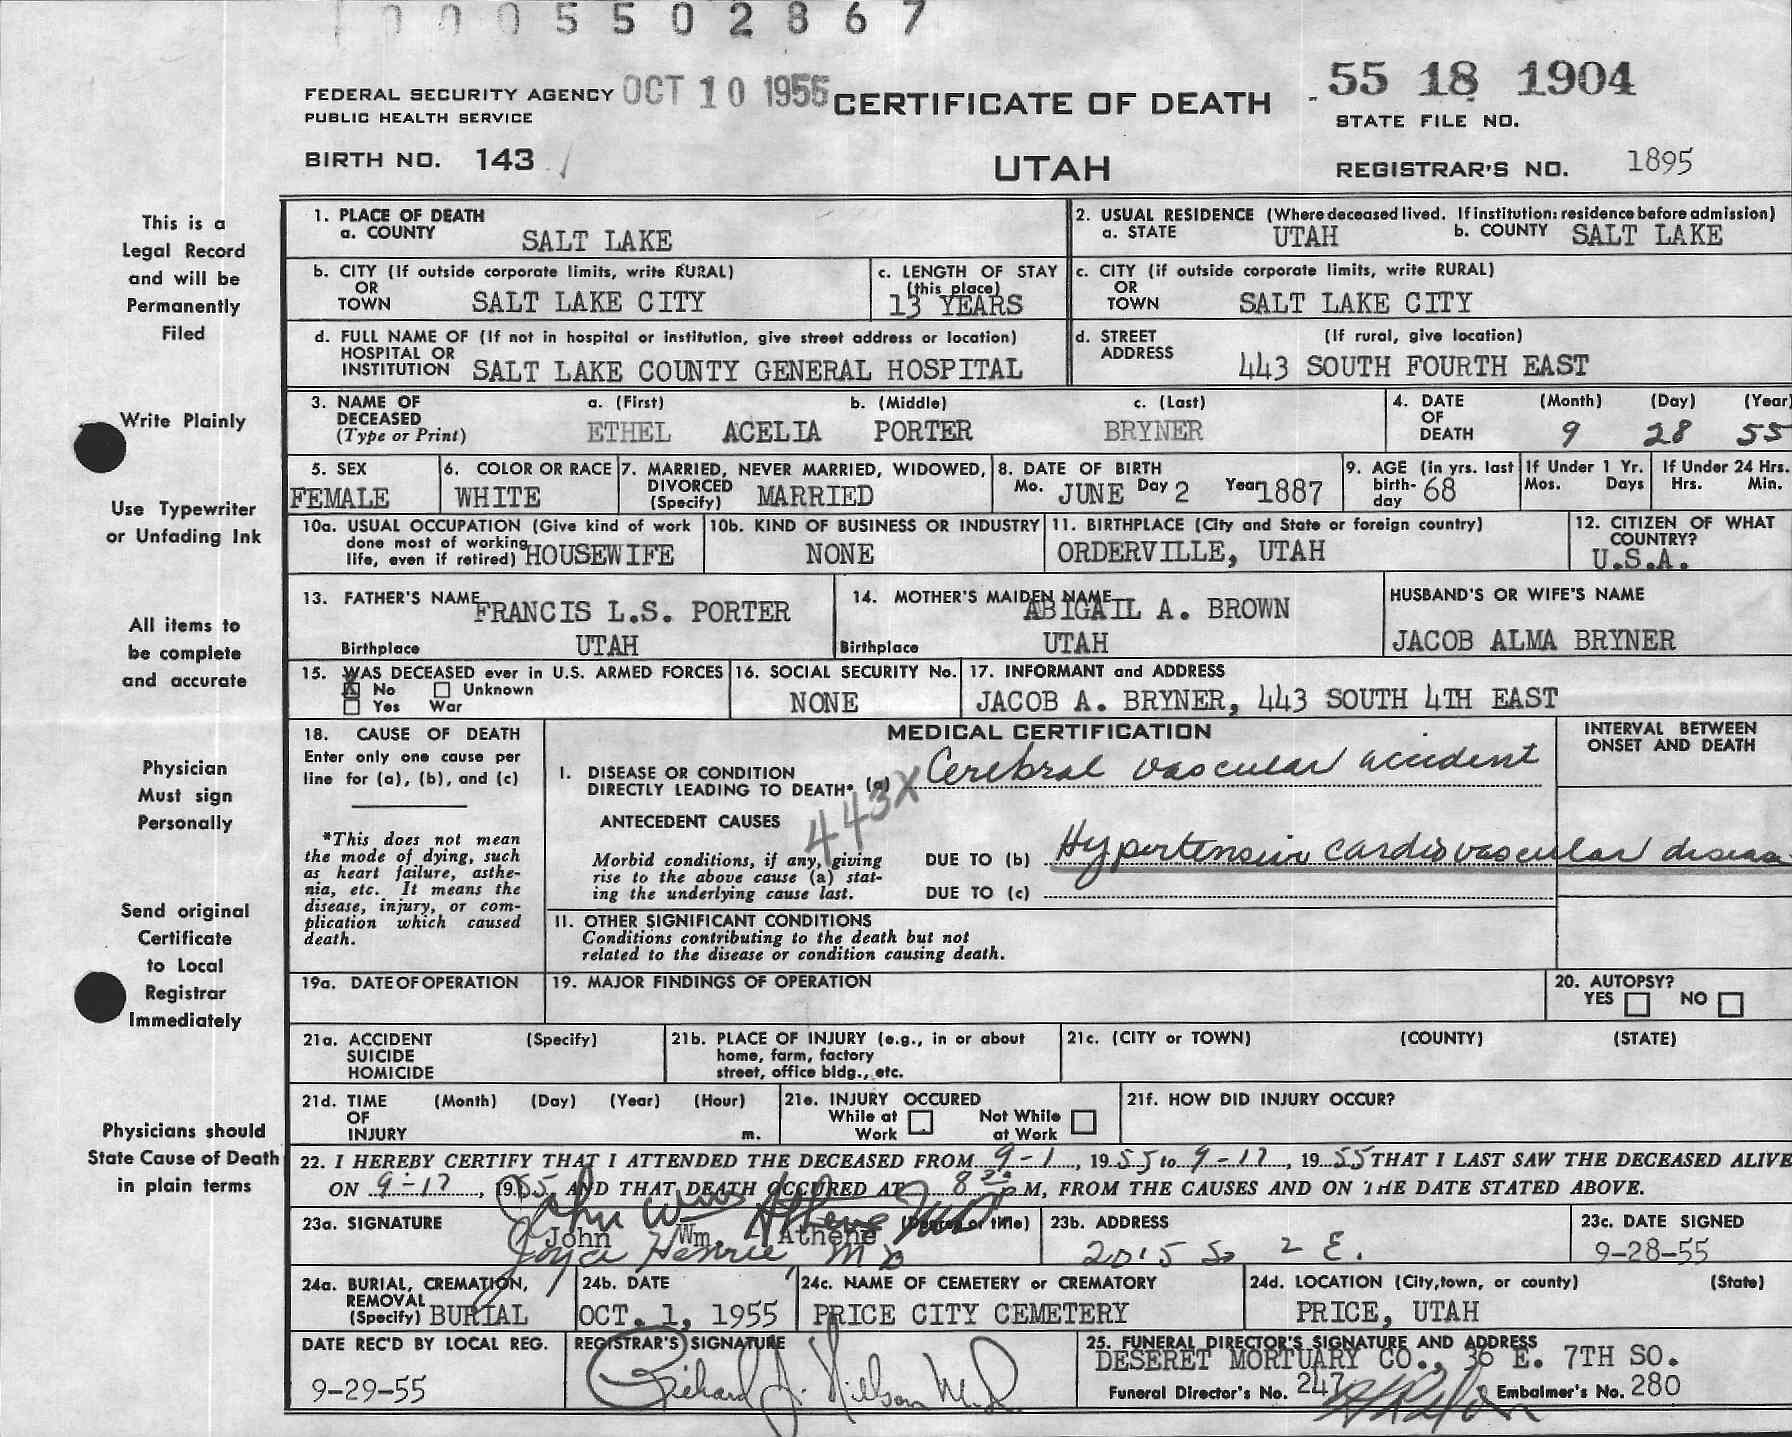 0 0 0 5 5 0 2 8 6 7
FEDERAL SECURITY AGENCY OCT 10 1955 CERTIFICATE OF DEATH 55 18 1904
PUBLIC HEALTH SERVICE STATE FILE NO.
BIRTH NO. 143 UTAH REGISTRAR'S NO. 1895
This is a
Legal Record
and will be
Permanently
Filed
Write Plainly
Use Typewriter
or Unfading Ink
All items to
be complete
and accurate
Physician
Must sign
Personally
Send original
Certificate
to Local
Registrar
Immediately
Physicians should
State Cause of Death
in plain terms
1. PLACE OF DEATH
a. COUNTY SALT LAKE
2. USUAL RESIDENCE (Where deceased lived. If institution: residence before admission)
a. STATE UTAH b. COUNTY SALT LAKE
b. CITY (If outside corporate limits, write RURAL)
OR
TOWN SALT LAKE CITY
c. LENGTH OF STAY
(this place)
13 YEARS
c. CITY (if outside corporate limits, write RURAL)
OR
TOWN SALT LAKE CITY
d. FULL NAME OF (If not in hospital or institution, give street address or location)
HOSPITAL OR
INSTITUTION SALT LAKE COUNTY GENERAL HOSPITAL
d. STREET (If rural, give location)
ADDRESS 443 SOUTH FOURTH EAST
3. NAME OF a. (First) b. (Middle) c. (Last)
DECEASED
(Type or Print) ETHEL ACELIA PORTER BRYNER
4. DATE (Month) (Day) (Year)
OF
DEATH 9 28 55
5. SEX
FEMALE
6. COLOR OR RACE
WHITE
7. MARRIED, NEVER MARRIED, WIDOWED,
DIVORCED
(Specify) MARRIED
8. DATE OF BIRTH
Mo. JUNE Day 2 Year 1887
9. AGE (in yrs. last
birth-
day 68
If Under 1 Yr.
Mos. Days
If Under 24 Hrs.
Hrs. Min.
10a. USUAL OCCUPATION (Give kind of work
done most of working
life, even if retired) HOUSEWIFE
10b. KIND OF BUSINESS OR INDUSTRY
NONE
11. BIRTHPLACE (City and State or foreign country)
ORDERVILLE, UTAH
12. CITIZEN OF WHAT
COUNTRY?
U.S.A.
13. FATHER'S NAME FRANCIS L.S. PORTER
Birthplace UTAH
14. MOTHER'S MAIDEN NAME ABIGAIL A. BROWN
Birthplace UTAH
HUSBAND'S OR WIFE'S NAME
JACOB ALMA BRYNER
15. WAS DECEASED ever in U.S. ARMED FORCES
X No Unknown
Yes War
16. SOCIAL SECURITY No.
NONE
17. INFORMANT and ADDRESS
JACOB A. BRYNER, 443 SOUTH 4TH EAST
18. CAUSE OF DEATH
Enter only one cause per
line for (a), (b), and (c)
*This does not mean
the mode of dying, such
as heart failure, asthe-
nia, etc. It means the
disease, injury, or com-
plication which caused
death.
MEDICAL CERTIFICATION
INTERVAL BETWEEN
ONSET AND DEATH
I. DISEASE OR CONDITION
DIRECTLY LEADING TO DEATH* (a) Cerebral vascular accident
443X
ANTECEDENT CAUSES
Morbid conditions, if any, giving
rise to the above cause (a) stat-
ing the underlying cause last.
DUE TO (b) Hypertensive cardiovascular disease
DUE TO (c)
II. OTHER SIGNIFICANT CONDITIONS
Conditions contributing to the death but not
related to the disease or condition causing death.
19a. DATE OF OPERATION
19. MAJOR FINDINGS OF OPERATION
20. AUTOPSY?
YES NO
21a. ACCIDENT (Specify)
SUICIDE
HOMICIDE
21b. PLACE OF INJURY (e.g., in or about
home, farm, factory
street, office bldg., etc.
21c. (CITY or TOWN) (COUNTY) (STATE)
21d. TIME (Month) (Day) (Year) (Hour)
OF
INJURY m.
21e. INJURY OCCURED
While at Not While
Work at Work
21f. HOW DID INJURY OCCUR?
22. I HEREBY CERTIFY THAT I ATTENDED THE DECEASED FROM 9-1, 1955 to 9-17, 1955 THAT I LAST SAW THE DECEASED ALIVE
ON 9-17, 1955 AND THAT DEATH OCCURED AT 8 P.M, FROM THE CAUSES AND ON THE DATE STATED ABOVE.
23a. SIGNATURE John Wm. Athene (Degree or title)
John Wm. Athene
Joyce Henrie, MD
23b. ADDRESS
2015 So 2 E.
23c. DATE SIGNED
9-28-55
24a. BURIAL, CREMATION,
REMOVAL
(Specify) BURIAL
24b. DATE
OCT. 1, 1955
24c. NAME OF CEMETERY or CREMATORY
PRICE CITY CEMETERY
24d. LOCATION (City, town, or county) (State)
PRICE, UTAH
DATE REC'D BY LOCAL REG.
9-29-55
REGISTRAR'S SIGNATURE
Richard J. Nillson M.D.
25. FUNERAL DIRECTOR'S SIGNATURE AND ADDRESS
DESERET MORTUARY CO., 36 E. 7TH SO.
Funeral Director's No. 247 Embalmer's No. 280